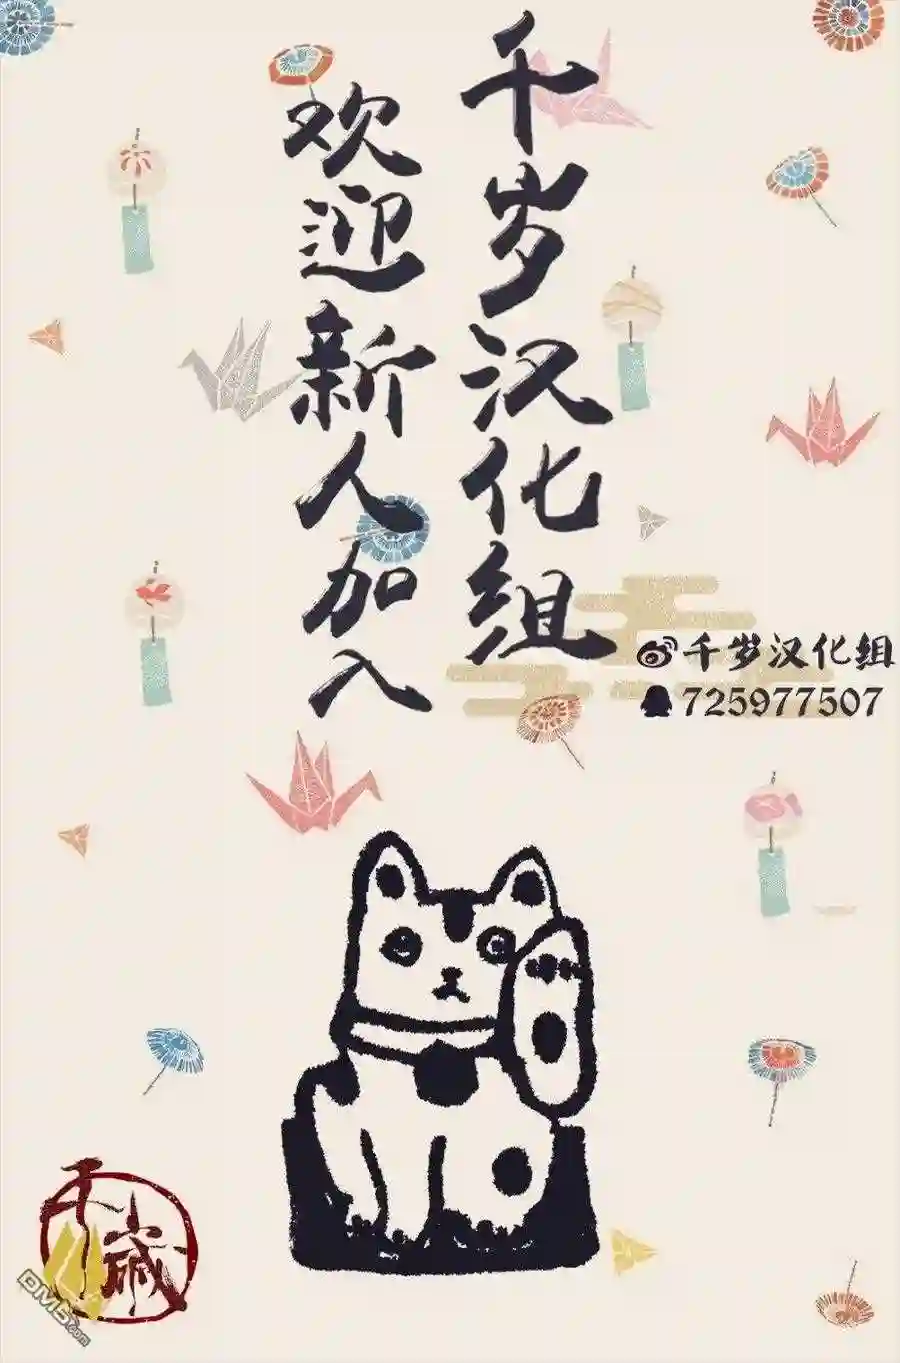 千岁汉化组
欢迎新人加入
千岁汉化组
725977507
千歳
DM5.com